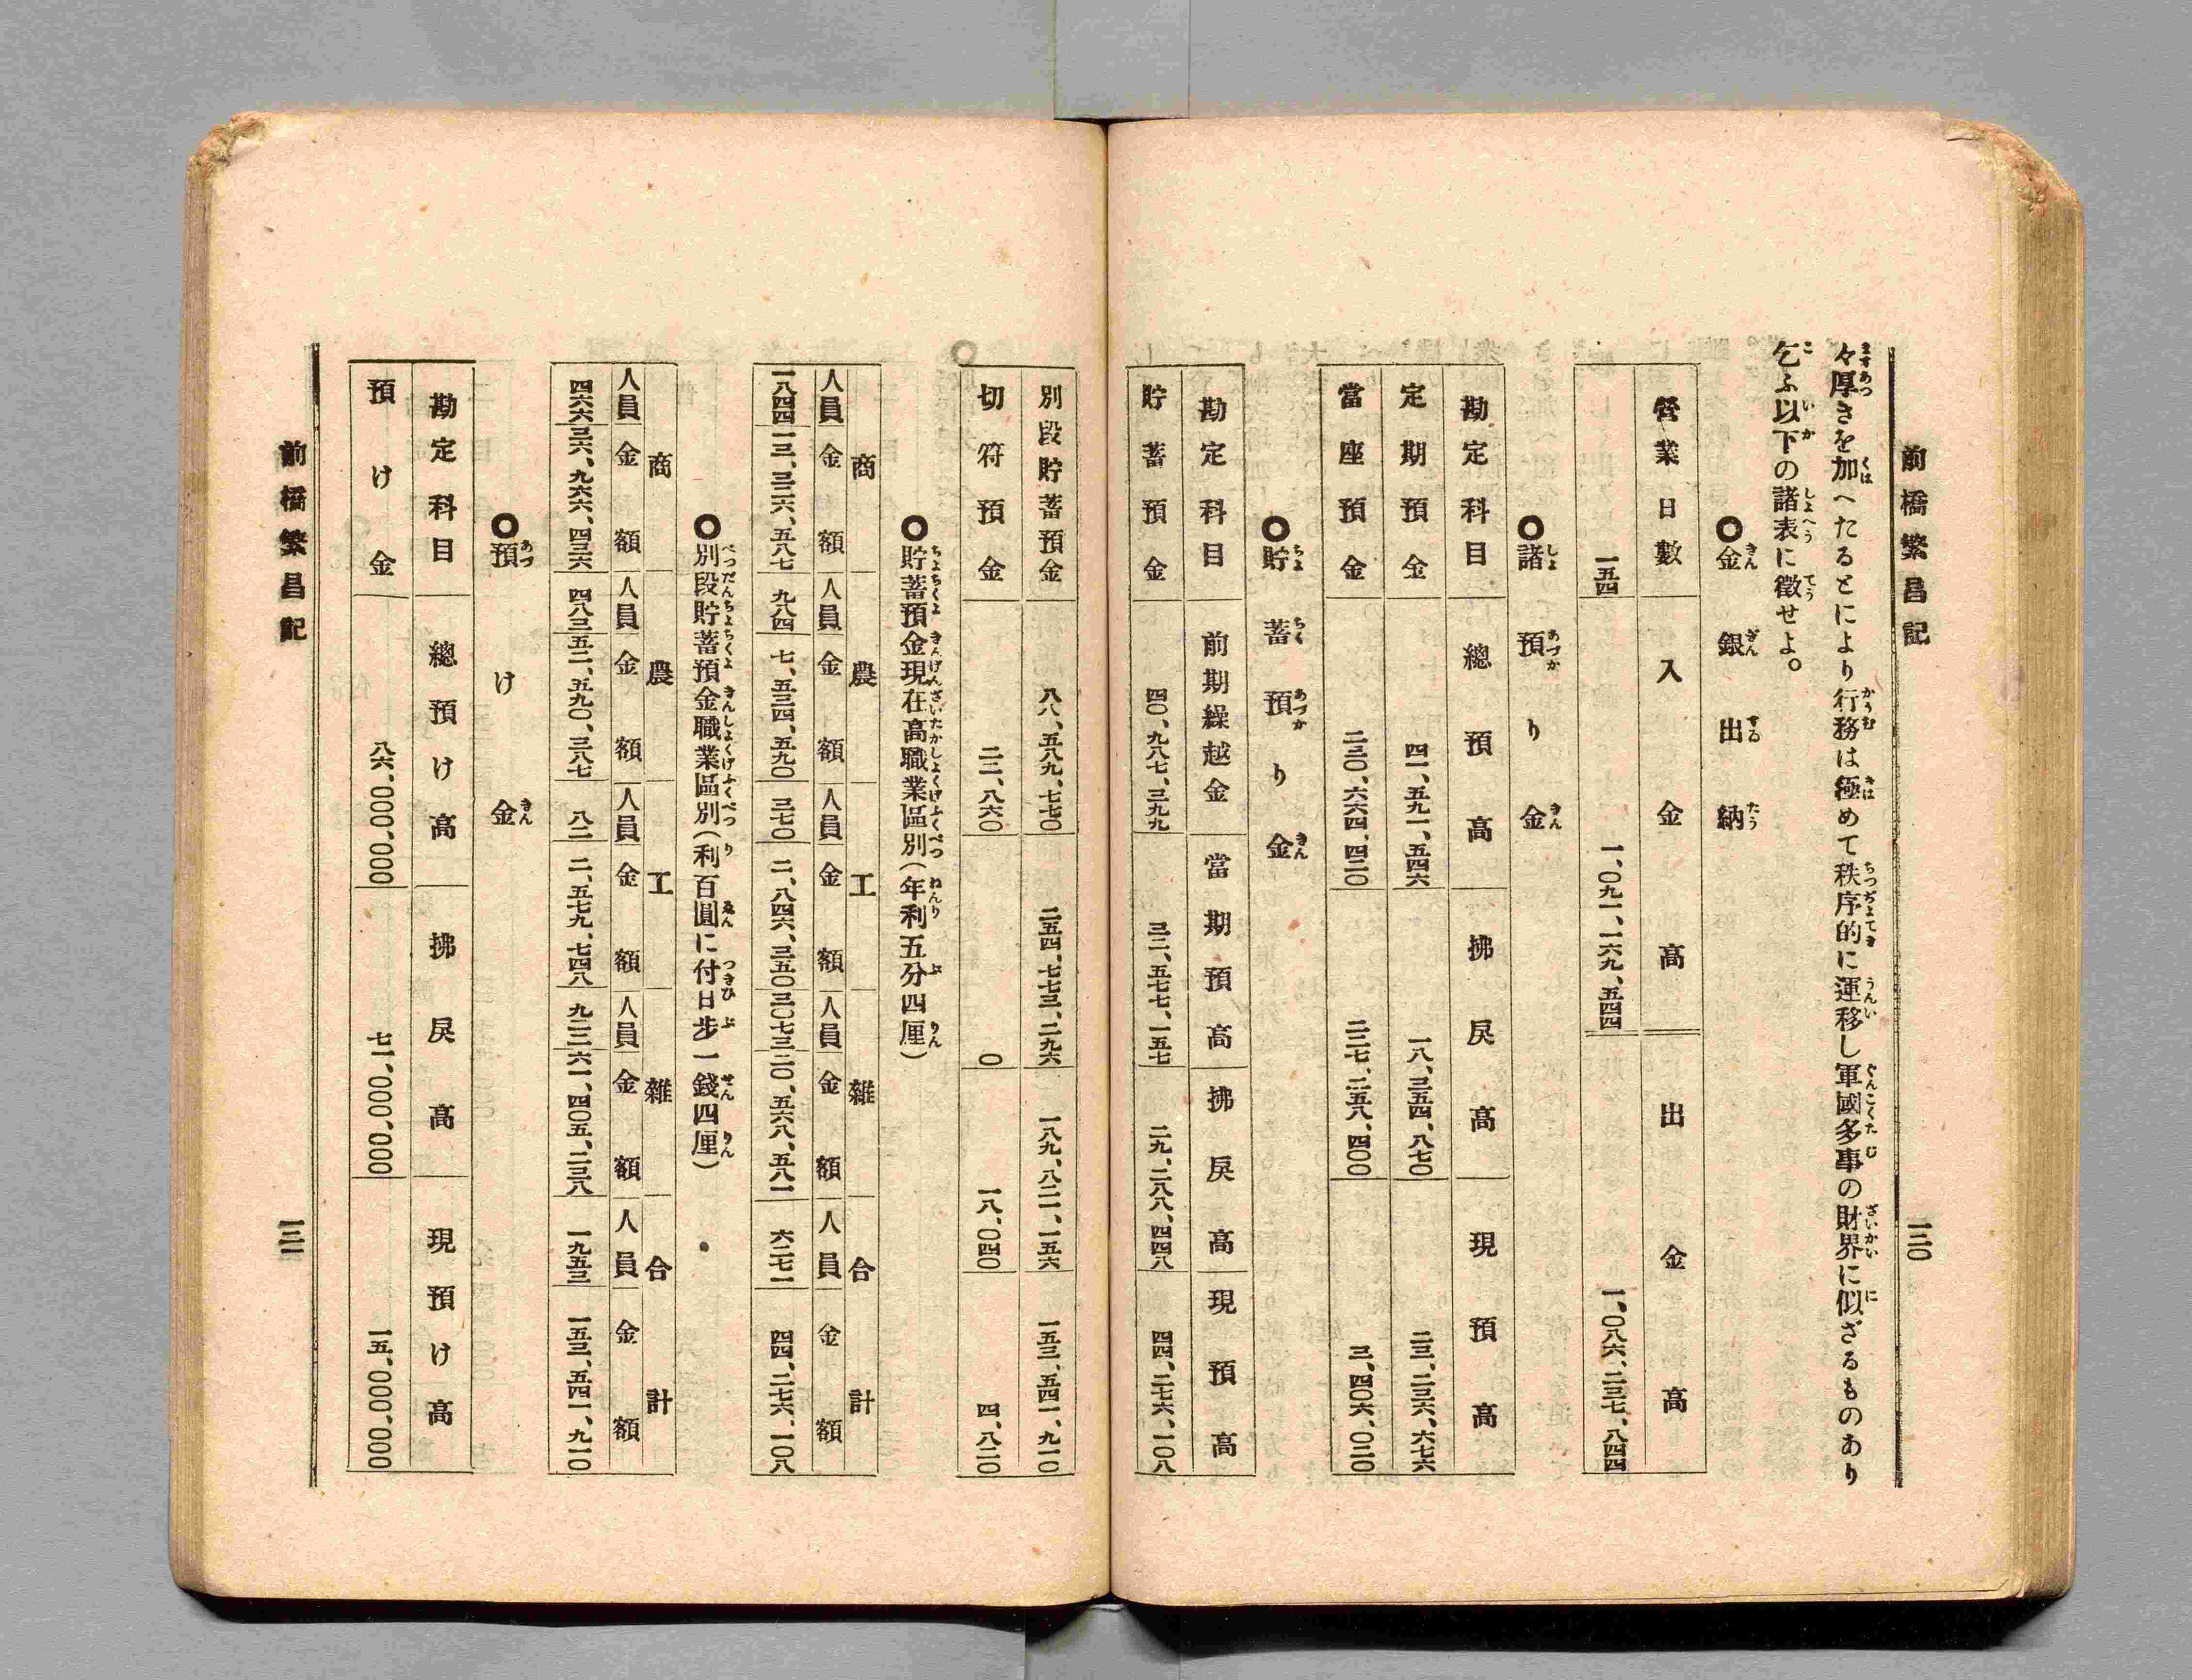 前橋繁昌記　一三〇
々厚きを加へたるとにより行務は極めて秩序的に運移し軍國多事の財界に似ざるものあり
乞ふ以下の諸表に徵せよ。
○金銀出納
營業日數　入金高　出金高
一五四　一、〇九一、一六九、五四四　一、〇八六、二三七、八四四
○諸預り金
勘定科目　總預高　拂戾高　現預高
定期預金　四一、五九一、五四六　一八、三五四、八七〇　二三、二三六、六七六
當座預金　二三〇、六六四、四二〇　二二七、二五八、四〇〇　三、四〇六、〇二〇
○貯蓄預り金
勘定科目　前期繰越金　當期預高　拂戾高　現預高
貯蓄預金　四〇、九八七、三九九　三二、五七七、一五七　二九、二八八、四四八　四四、二七六、一〇八
別段貯蓄預金　八八、五八九、七七〇　二五四、七七三、二九六　一八九、八二一、一五六　一五三、五四一、九一〇
切符預金　二二、八六〇　〇　一八、〇四〇　四、八二〇
○貯蓄預金現在高職業區別（年利五分四厘）
商　農　工　雜　合計
人員　金額　人員　金額　人員　金額　人員　金額　人員　金額
一八四四　一三、三二六、五八七　九八四　七、五三四、五九〇　三七〇　二、八四六、三五〇　三〇七三　二〇、五六八、五八一　六二七一　四四、二七六、一〇八
○別段貯蓄預金職業區別（利百圓に付日步一錢四厘）
商　農　工　雜　合計
人員　金額　人員　金額　人員　金額　人員　金額　人員　金額
四六六　三六、九六六、四三六　四八三　五二、五九〇、三八七　八二　二、五七九、七四八　九二二　六一、四〇五、二三八　一九五三　一五三、五四一、九一〇
○預け金
勘定科目　總預け高　拂戾高　現預け高
預け金　八六、〇〇〇、〇〇〇　七一、〇〇〇、〇〇〇　一五、〇〇〇、〇〇〇
前橋繁昌記　一三一